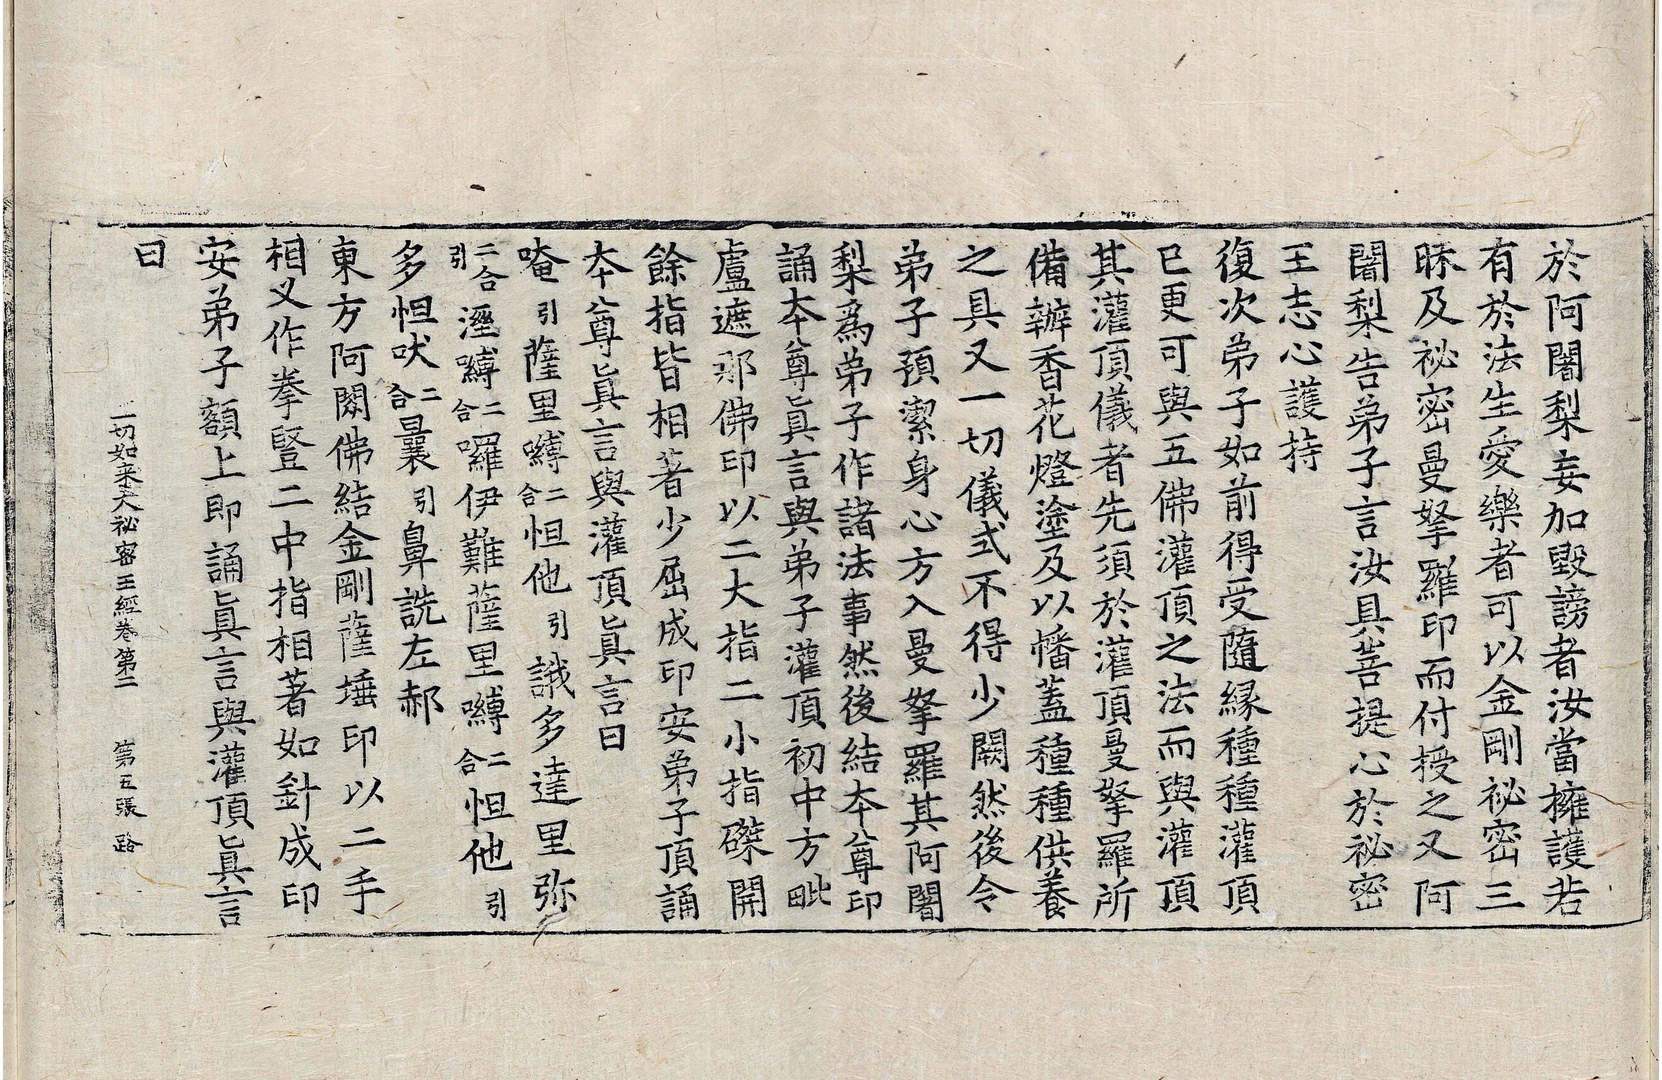 於阿闍梨妄加毀謗者汝當擁護若
有於法生愛樂者可以金剛祕密三
昧及祕密曼拏羅印而付授之又阿
闍梨告弟子言汝具菩提心於祕密
王志心護持
復次弟子如前得受隨緣種種灌頂
已更可與五佛灌頂之法而與灌頂
其灌頂儀者先須於灌頂曼拏羅所
備辦香花燈塗及以幡蓋種種供養
之具又一切儀式不得少闕然後令
弟子預潔身心方入曼拏羅其阿闍
梨為弟子作諸法事然後結本尊印
誦本尊真言與弟子灌頂初中方毗
盧遮那佛印以二大指二小指磔開
餘指皆相著少屈成印安弟子頂誦
本尊真言與灌頂真言曰
唵引薩里嚩二合怛他引誐多達里弥
二合引溼嚩二合囉伊難薩里嚩二合怛他引
多怛吠二合曩引鼻詵左郝
東方阿閦佛結金剛薩埵印以二手
相叉作拳豎二中指相著如針成印
安弟子額上即誦真言與灌頂真言
曰
一切如来大祕密王經卷第二 第五張 路